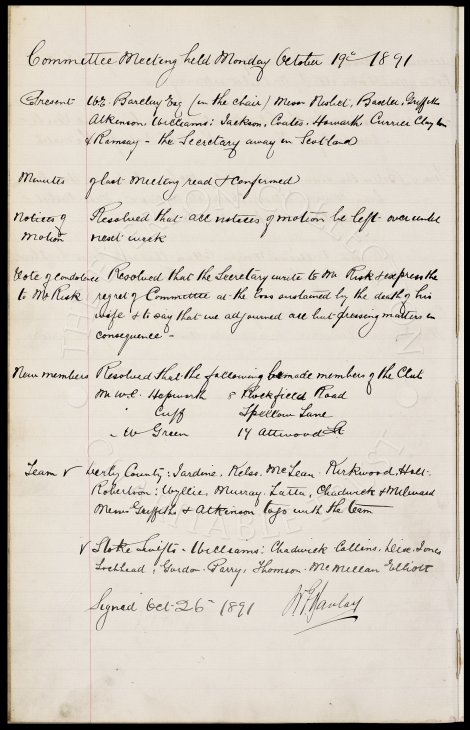 Committee Meeting held Monday October 19th 1891
Present W.E. Barclay Esq (in the chair) Messrs Nisbet, Baxter, Griffiths
Atkinson Williams: Jackson, Coates. Howarth Currier Clayton
& Ramsay - the Secretary away in Scotland
Minutes of last Meeting read & confirmed
Notices of Resolved that all notices of motion be left over until
Motion next week
Vote of condolence Resolved that the Secretary write to Mr Risk & express the
to Mr Risk regret of Committee at the loss sustained by the death of his
wife & to say that we adjourned all but pressing matters in
consequence -
New members Resolved that the following be made members of the Club
Mr W.E. Hepworth 8 Rockfield Road
" Cuff Spellow Lane
" W Green 14 Attwood St
Team v Derby County: Jardine, Kelso. McLean. Kirkwood, Holt.
Robertson: Wyllie, Murray. Latta, Chadwick & Milward
Messrs Griffiths & Atkinson to go with the team
v Stoke Swifts - Williams: Chadwick Collins, Jones
Lochhead, Gordon. Parry, Thomson. McMillan Elliott
Signed Oct 26th 1891 W E Barclay